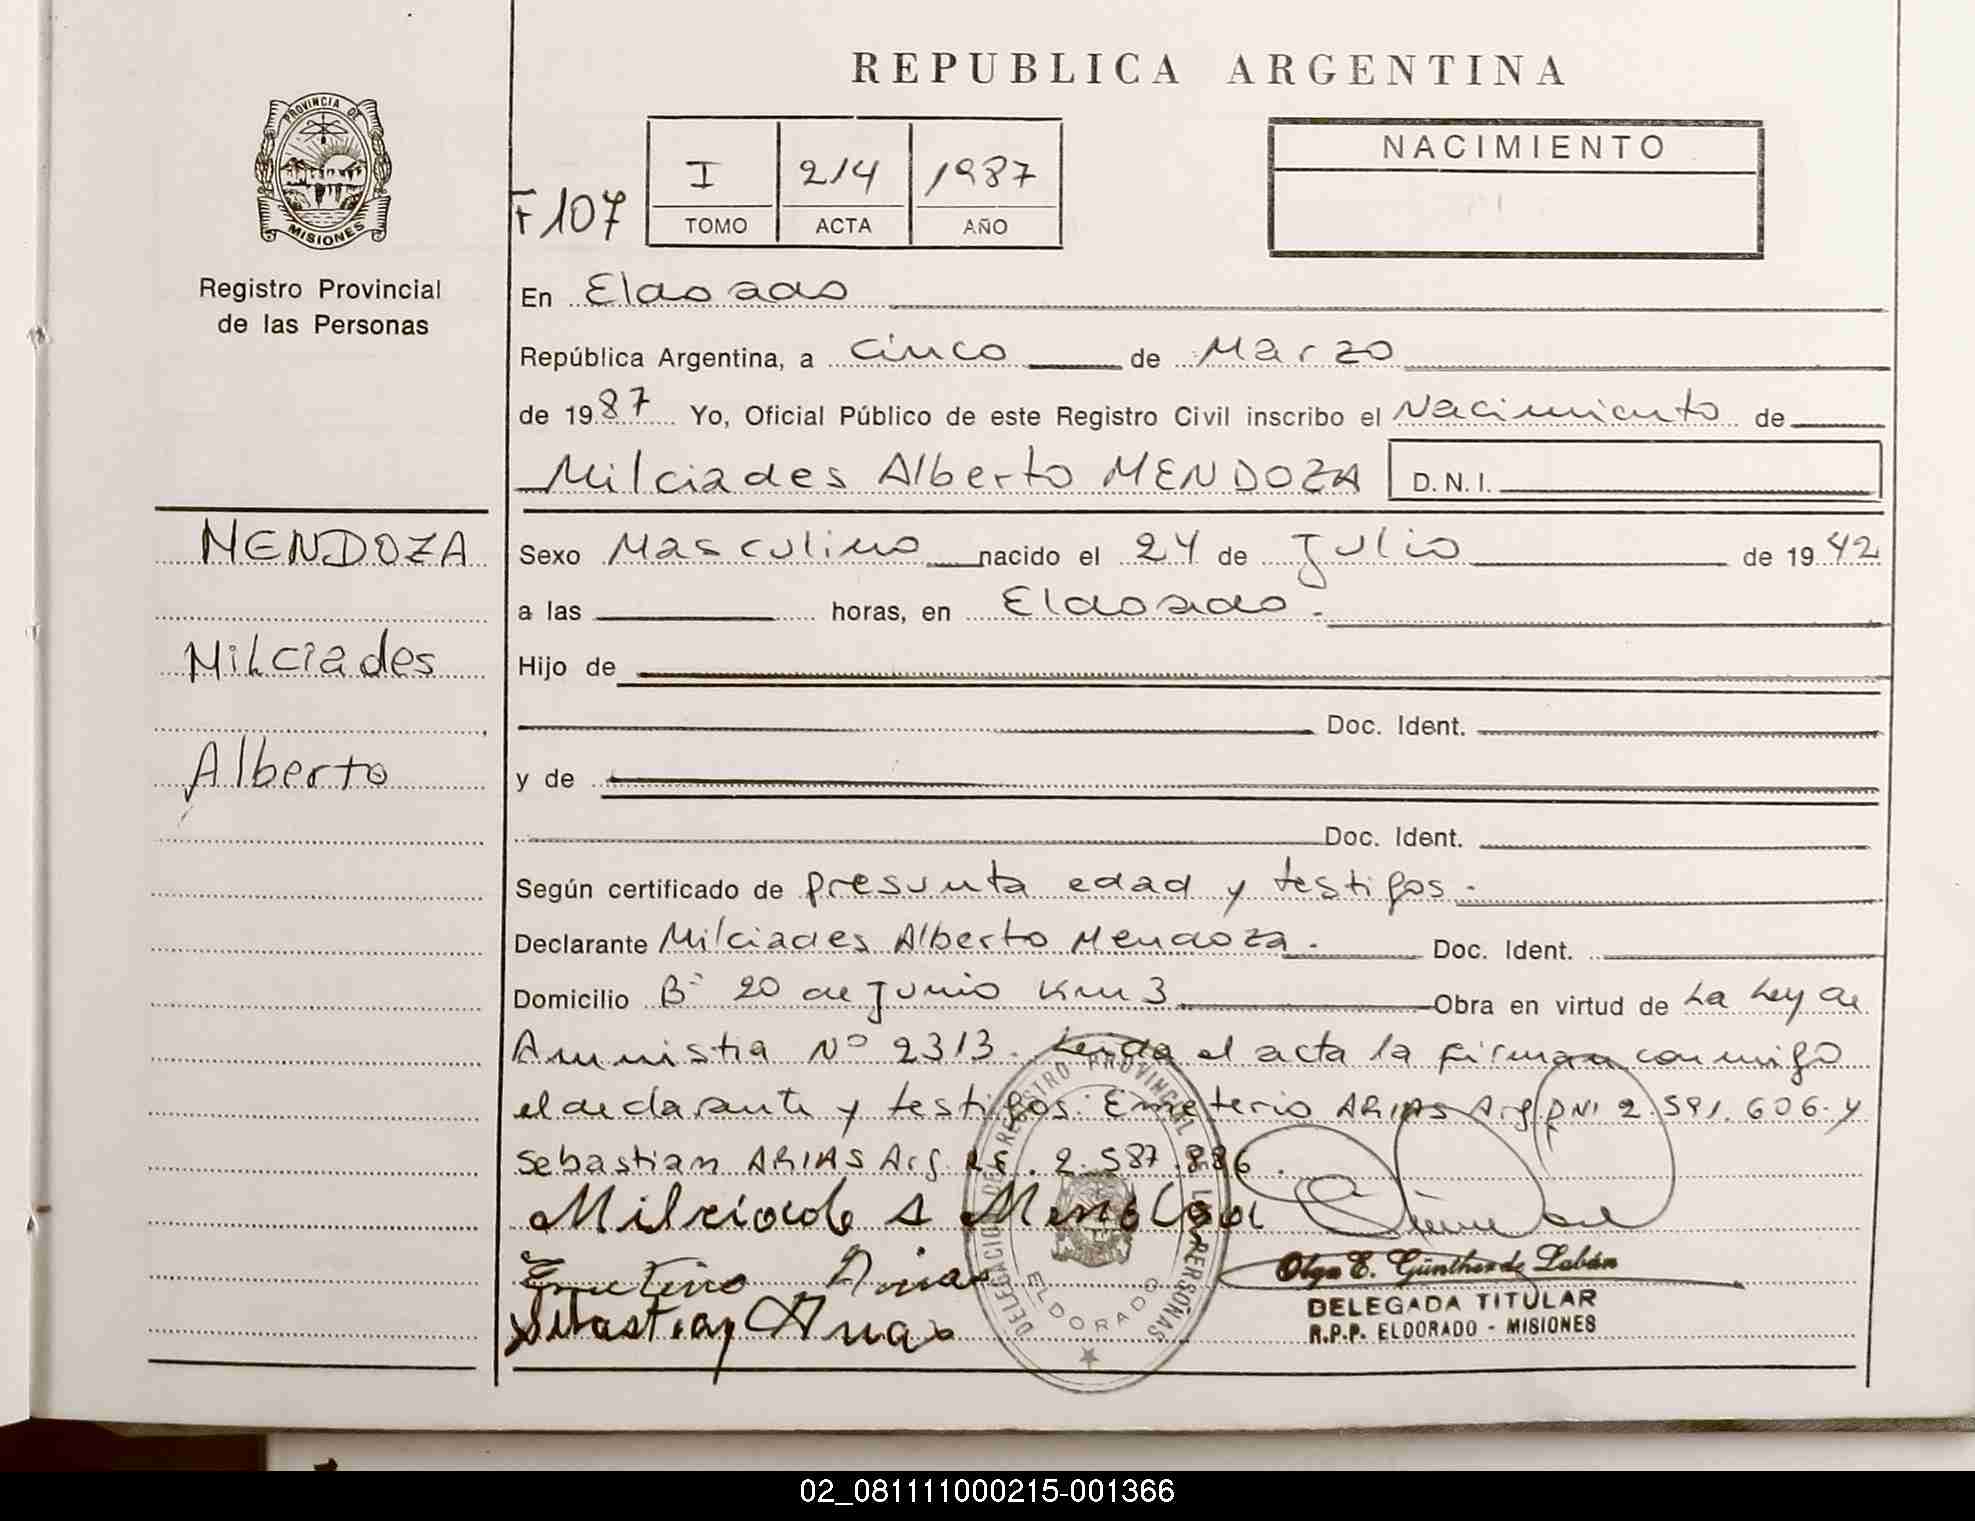 REPUBLICA ARGENTINA
PROVINCIA DE
MISIONES
Registro Provincial
de las Personas
F 107
I 214 1987
TOMO ACTA AÑO
NACIMIENTO
En Eldorado
República Argentina, a cinco de Marzo
de 1987 Yo, Oficial Público de este Registro Civil inscribo el Nacimiento de
Milciades Alberto MENDOZA D.N.I.
MENDOZA
Milciades
Alberto
Sexo Masculino nacido el 24 de Julio de 1942
a las horas, en Eldorado.
Hijo de
Doc. Ident.
y de
Doc. Ident.
Según certificado de presunta edad y testigos.
Declarante Milciades Alberto Mendoza. Doc. Ident.
Domicilio Bº 20 de Junio Km 3 Obra en virtud de La Ley de
Amnistia Nº 2313. Leida el acta la firman conmigo
el declarante y testigos: Emeterio ARIAS Arg. DNI 2.591.606. y
Sebastian ARIAS Arg. L.E. 2.587.886.
Milciade A Mendoza
Emeterio Arias
Sebastian Arias
DELEGACION DE REGISTRO PROVINCIAL DE LAS PERSONAS
ELDORADO
Olga E. Günther de Labán
DELEGADA TITULAR
R.P.P. ELDORADO - MISIONES
02_081111000215-001366